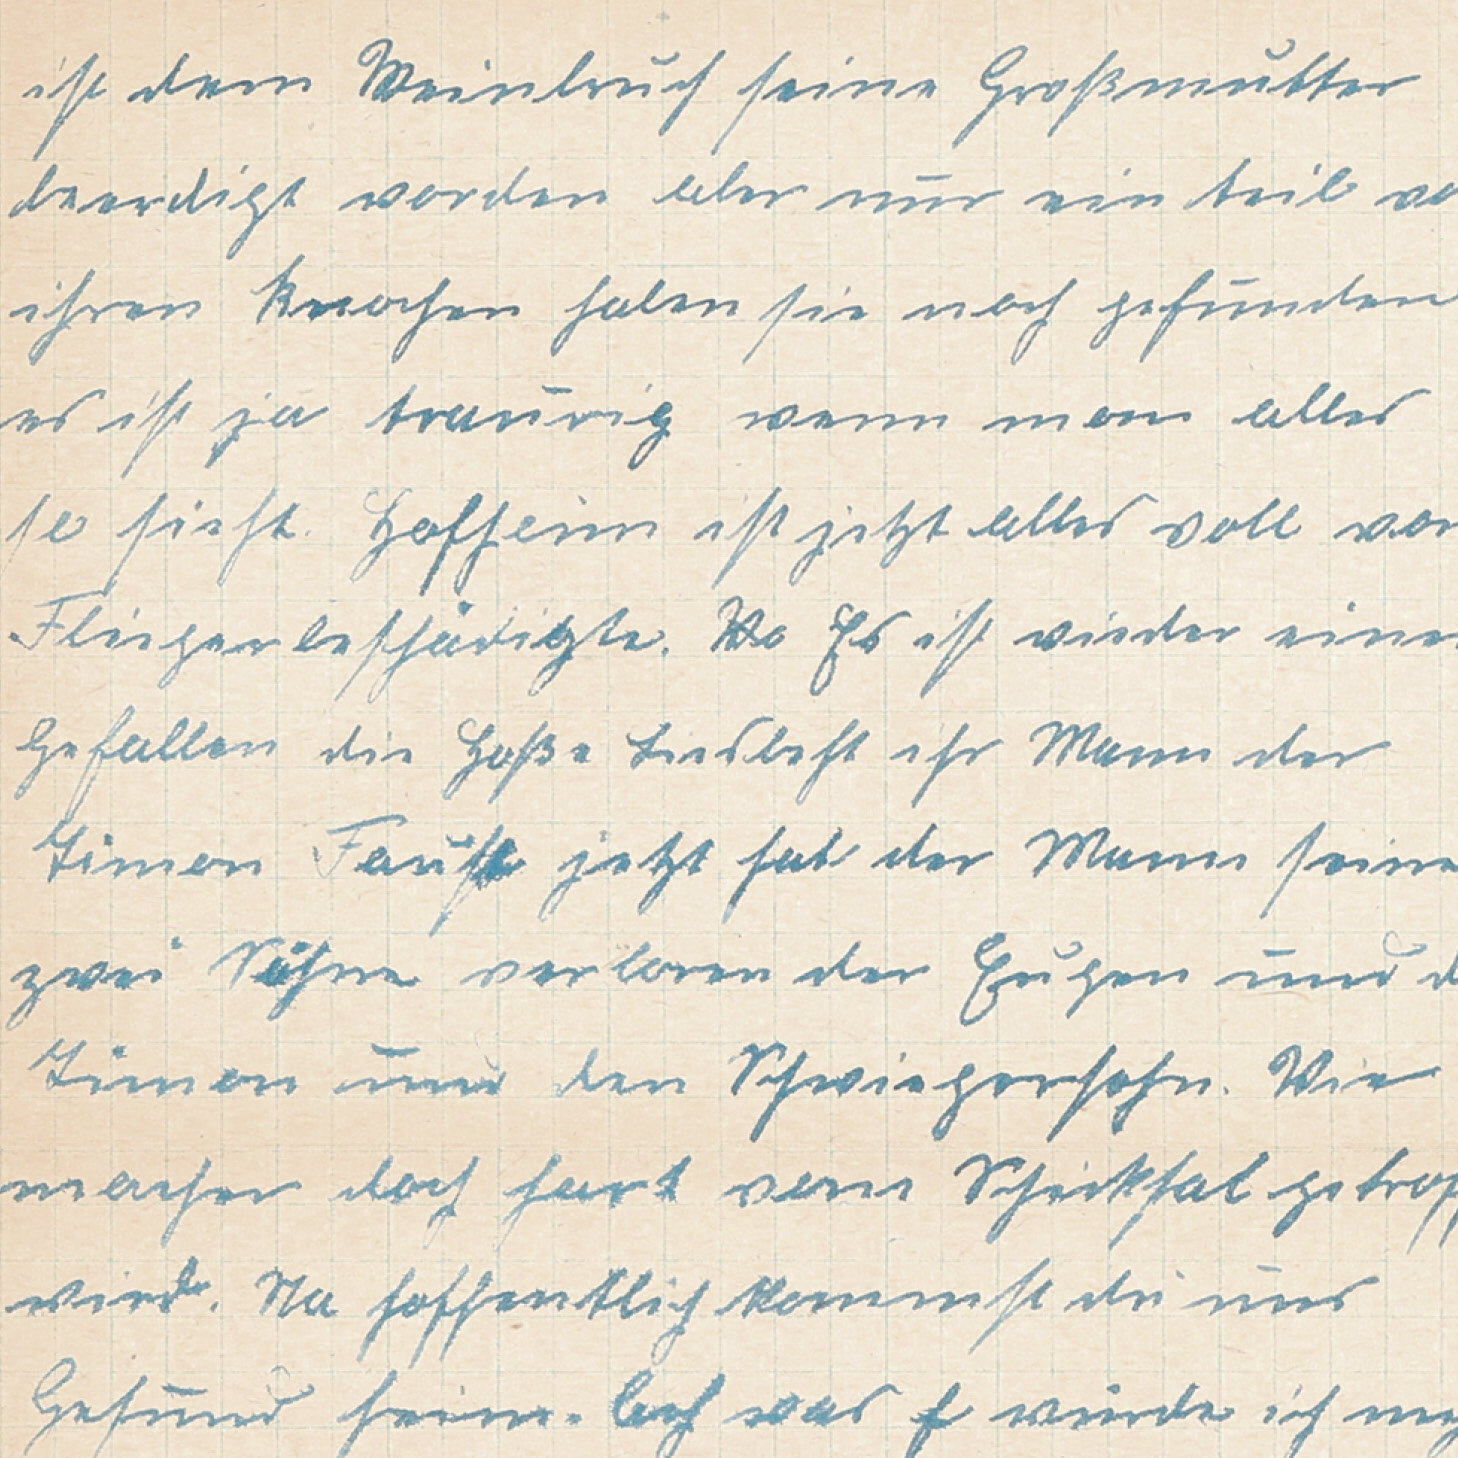 ist dem Weinbruch seine Großmutter
beerdigt worden aber nur ein teil vo
ihren Knochen haben sie noch gefunden
es ist ja traurig wenn man alles
so sieht. Hofheim ist jetzt alles voll von
Fliegerbeschädigte. Wo Es ist wieder einer
Gefallen die ihr Mann der
Simon Faust jetzt hat der Mann seine
zwei Söhne verloren der Eugen und d
Simon und den Schwiegersohn. Wie
macher doch hart vom Schicksal getroff
wird. Na hoffentlich kommst du uns
Gesund heim. Ach was f würde ich